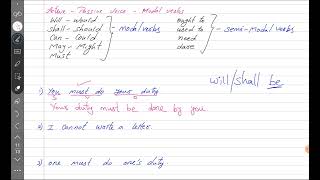 Active - Passive Voice - Modal verbs
Will - would
shall - should
Can - Could
May - Might
Must
modal verbs
ought to
used to
need
dare
semi-modal verbs
will/shall be
1) You must do your duty
Your duty must be done by you
2) I cannot write a letter.
3) one must do one's duty.